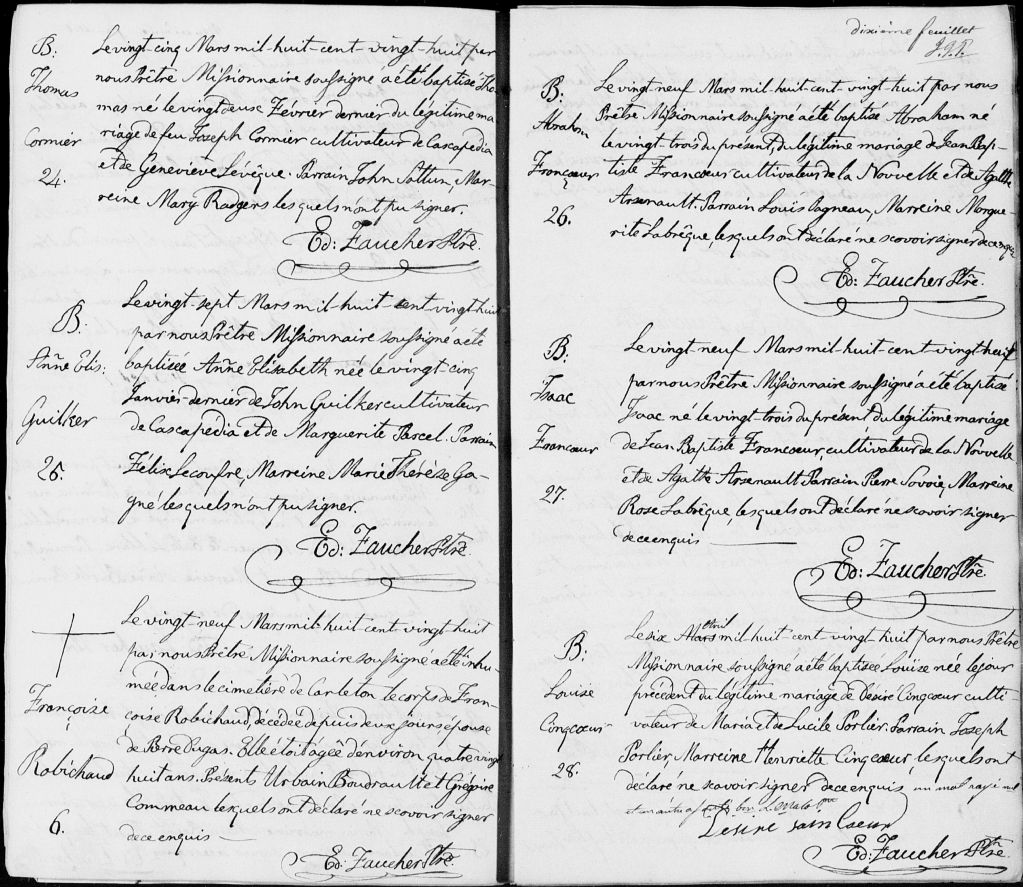 B.
Thomas
Cormier
24.
Le vingt-cinq Mars mil-huit-cent-vingt-huit par
nous Prêtre Missionnaire soussigné a été baptisé Tho
mas né le vingt deuxe Février dernier du légitime ma
riage de feu Joseph Cormier cultivateur de Cascapedia
et de Geneviève Lévêque. Parrain John Mar-
reine Mary Rodgers lesquels n'ont pu signer.
Ed: Faucher Ptre.
B.
Anne Elis:
Guilker
25.
Le vingt-sept Mars mil-huit-cent-vingt huit
par nous Prêtre Missionnaire soussigné a été
baptisée Anne Elisabeth née le vingt cinq
Janvier dernier de John Guilker cultivateur
de Cascapedia et de Marguerite Parcel. Parrain
Félix Lecoufre, Marreine Marie Thérèse Ga-
gné lesquels n'ont pu signer.
Ed: Faucher Ptre.
Françoise
Robichaud
6.
Le vingt-neuf Mars mil-huit-cent-vingt huit
par nous Prêtre Missionnaire soussigné a été inhu-
mée dans le cimetière de Carleton le corps de Fran-
çoise Robichaud, décédée depuis deux jours épouse
de Pierre Dugas. Elle étoit âgée d'environ quatre vingt
huit ans. Présents Urbain Boudrault et Grégoire
Commeau lesquels ont déclaré ne scavoir signer
de ce enquis
Ed: Faucher Ptre.
dixième feuillet
B.
Abrahm
Francœur
26.
Le vingt neuf Mars mil-huit-cent-vingt huit par nous
Prêtre Missionnaire soussigné a été baptisé Abraham né
le vingt-trois du présent, du légitime mariage de Jean Bap-
tiste Francœur cultivateur de la Nouvelle et de Agathe
Arsenault. Parrain Louis Gagneau, Marreine Margue-
rite Labrêque, lesquels ont déclaré ne scavoir signer de ce enquis
Ed: Faucher Ptre.
B.
Isaac
Francœur
27.
Le vingt-neuf Mars mil-huit-cent-vingt huit
par nous Prêtre Missionnaire soussigné a été baptisé
Isaac né le vingt-trois du présent du légitime mariage
de Jean Baptiste Francœur, cultivateur de la Nouvelle
et de Agathe Arsenault Parrain Pierre Savoie, Marreine
Rose Labrêque, lesquels ont déclaré ne scavoir signer
de ce enquis
Ed: Faucher Ptre.
B.
Louise
Cinqcœur
28.
Avril
Le six Mars mil-huit-cent-vingt huit par nous Prêtre
Missionnaire soussigné a été baptisée Louise née le jour
précédent du légitime mariage de Désiré Cinqcœur culti
vateur de Maria et de Lucile Porlier. Parrain Joseph
Porlier, Marreine Henriette Cinqcœur lesquels ont
déclaré ne scavoir signer de ce enquis un mot rayé nul
Ed: Faucher Ptre.